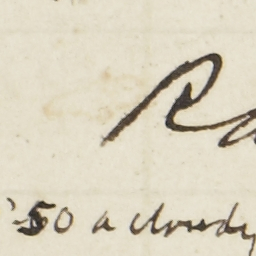 Ra
50 a cloudy